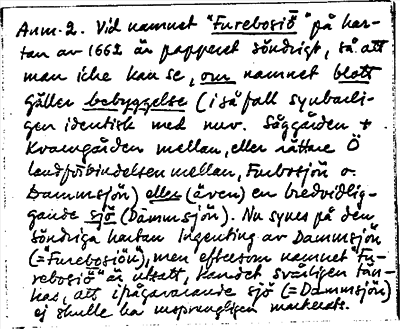 Anm. 2. Vid namnet "Furebosiö" på kar-
tan av 1662 är papperet söndrigt, så att
man icke kan se, om namnet blott
gäller bebyggelse (i så fall synbarli-
gen identisk med nuv. Såggården +
Kvarngården mellan, eller rättare Ö
landförbindelsen mellan, Furbosjön o.
Dammsjön) eller (även) en bredvidlig-
gande sjö (Dammsjön). Nu synes på den
söndriga kartan ingenting av Dammsjön
(="Furebosiön"), men eftersom namnet "Fu-
rebosiö" är utsatt, kan det svårligen tän-
kas, att ifrågavarande sjö (= Dammsjön)
ej skulle ha ursprungligen markerats.